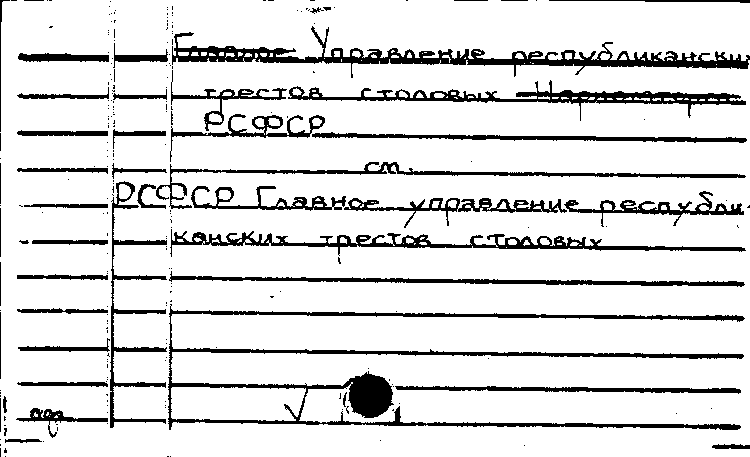 Главное Управление республикански
трестов столовых Наркомторга
РСФСР
см.
РСФСР Главное управление республи-
канских трестов столовых